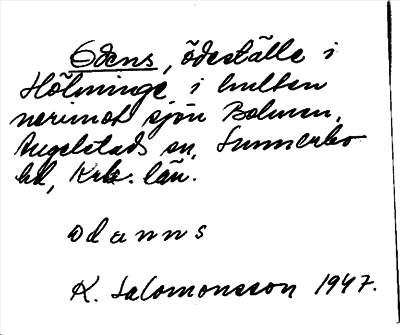 Odens, ödeställe i
Hölminge i hulten
norimot sjön Bolmen,
Angelstads sn, Sunnerbo
hd, Krb. län.
odanns
K. Salomonsson 1947.